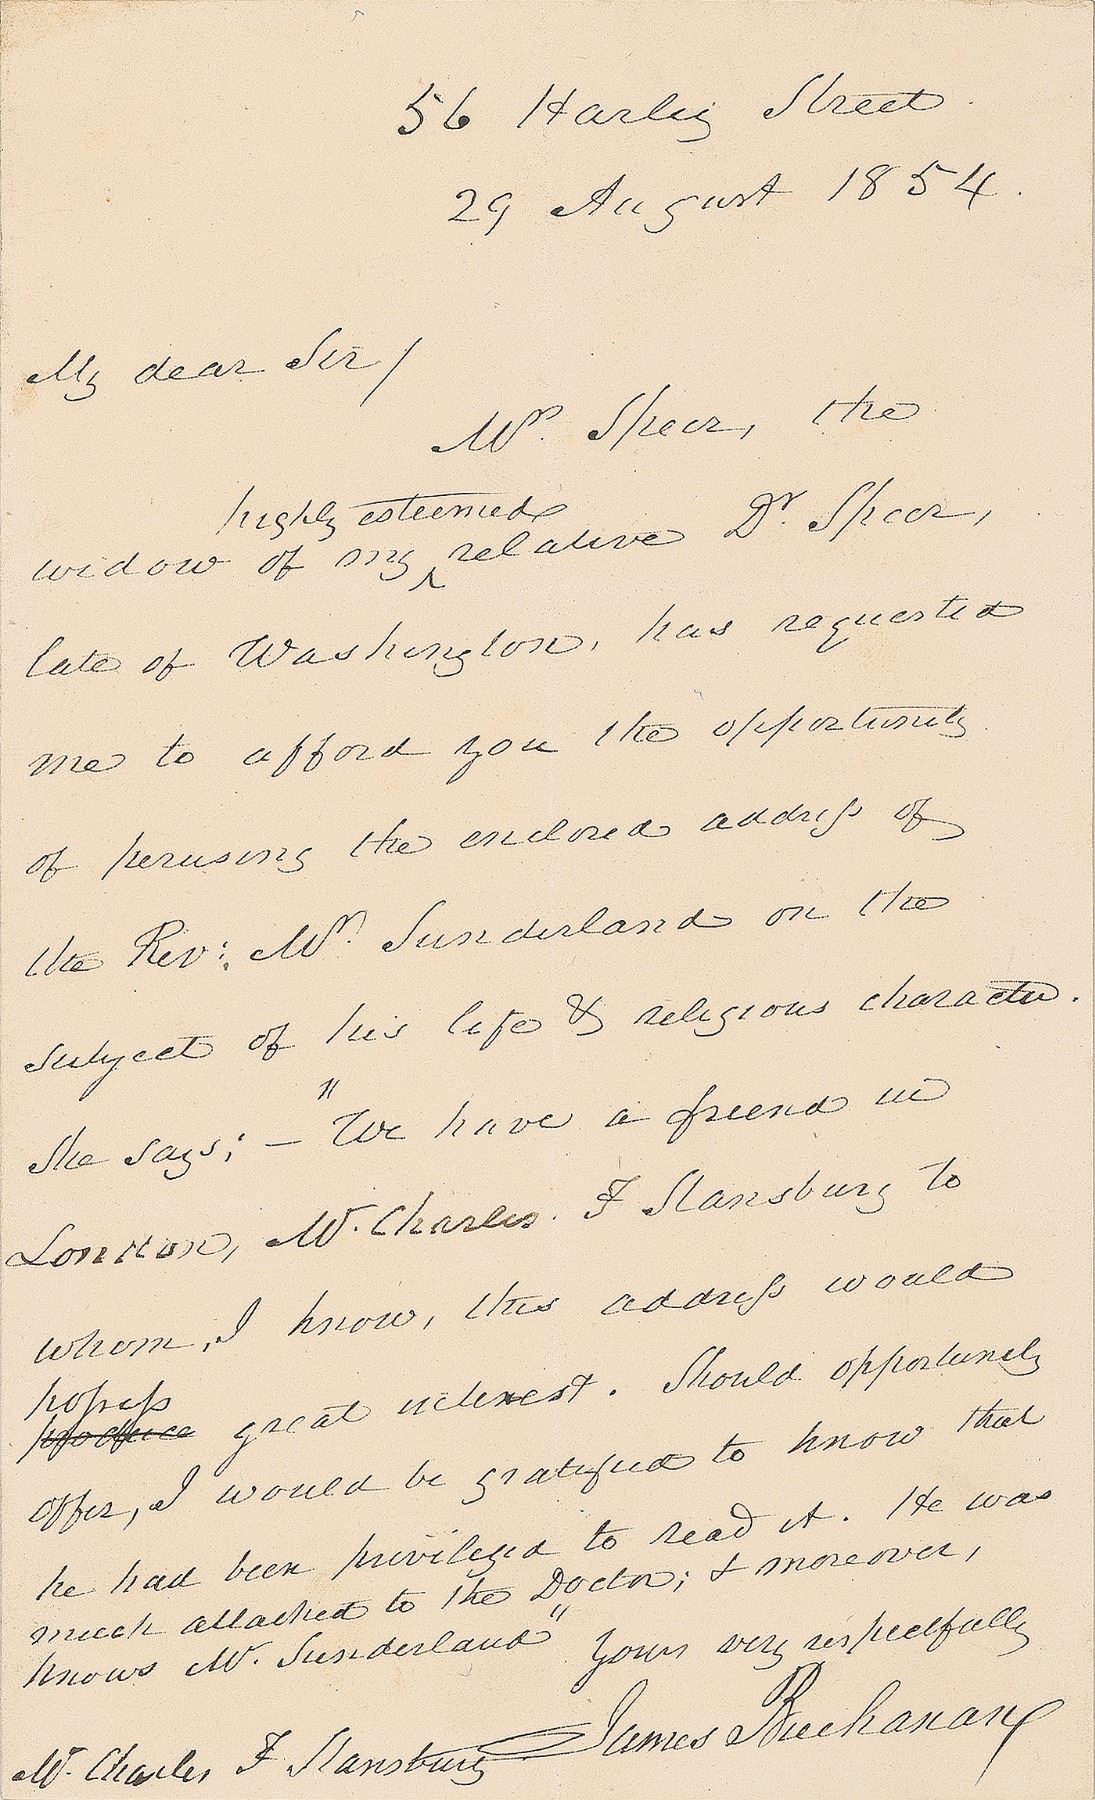 56 Harley Street
29 August 1854.
My dear Sir/
Mrs. Speer, the
highly esteemed
widow of my ^ relative Dr. Speer,
late of Washington, has requested
me to afford you the opportunity
of perusing the enclosed address of
the Rev: Mr. Sunderland on the
subject of his life & religious character.
She says; – "We have a friend in
London, Mr. Charles. F Stansbury to
whom, I know, this address would
possess
produce great interest. Should opportunity
offer, I would be gratified to know that
he had been privileged to read it. He was
much attached to the Doctor; & moreover,
knows Mr. Sunderland" Yours very respectfully
James Buchanan
Mr. Charles F Stansbury